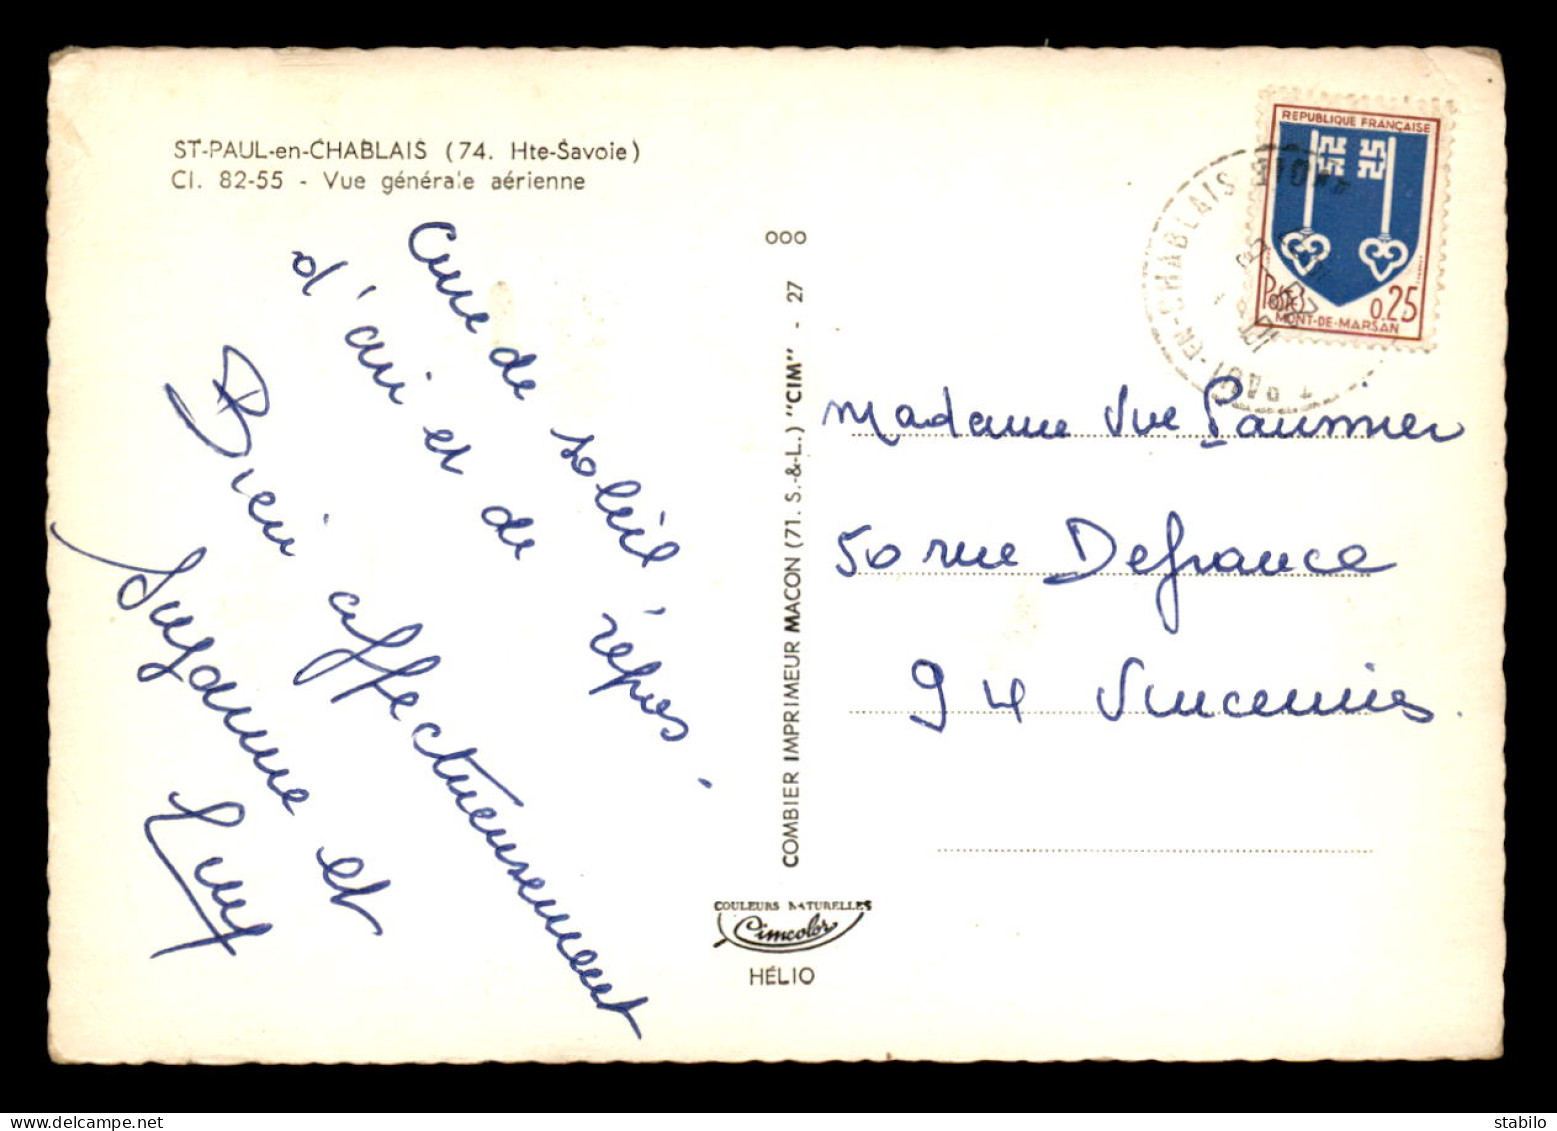 ST-PAUL-en-CHABLAIS (74. Hte-Savoie)
Cl. 82-55 - Vue générale aérienne
Cure de soleil
d'air et de repos.
Bien affectueusement
Suzanne et
COMBIER IMPRIMEUR MACON (71. S.-&-L.) "CIM" - 27
000
COULEURS NATURELLES
Cimcolor
HÉLIO
REPUBLIQUE FRANÇAISE
Postes
0.25
MONT-DE-MARSAN
PAUL-EN-CHABLAIS
Madame Vve Paumier
50 rue Defrance
94 Vincennes.
delcampe.net
stabilo